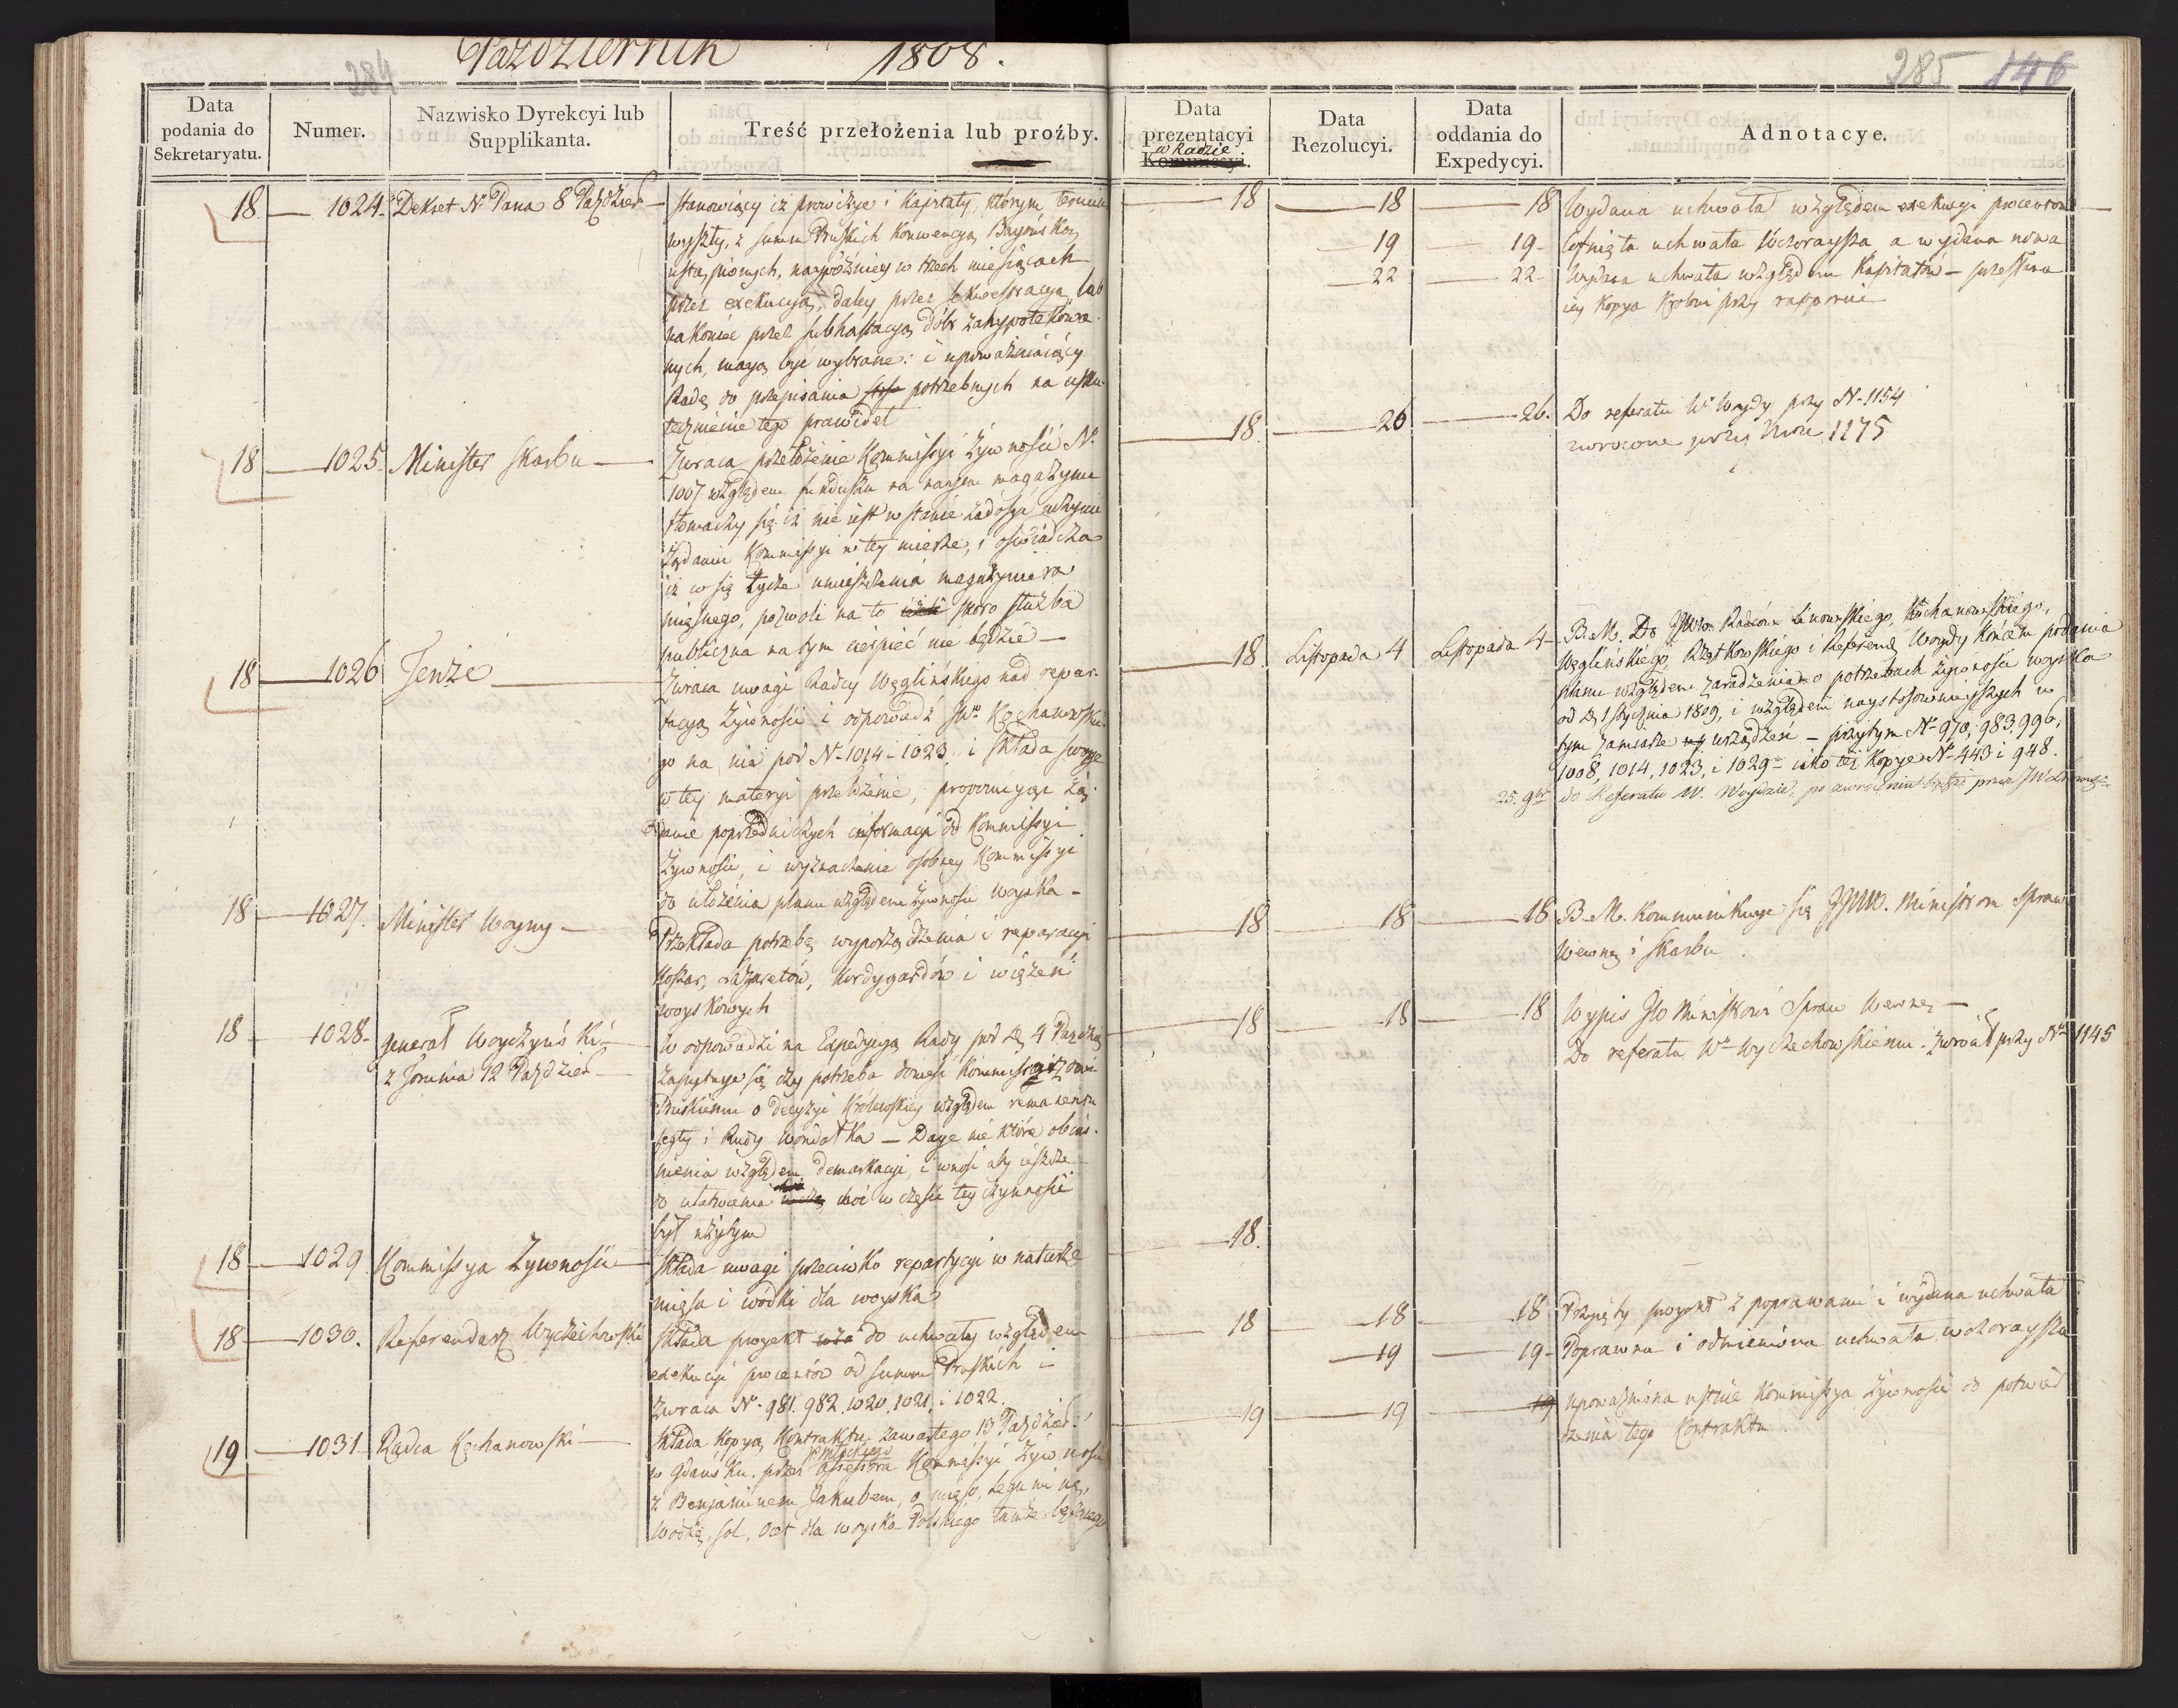 Październik 1808.
284
285 146
Data podania do Sekretaryatu.
Numer.
Nazwisko Dyrekcyi lub Supplikanta.
Treść przełożenia lub proźby.
Data prezentacyi w Radzie Kommissyi.
Data Rezolucyi.
Data oddania do Expedycyi.
Adnotacye.
18 — 1024. Dekret N. Pana 8 Paździer —
stanowiący iż prowizye i Kapitały, którym termin
wyszły, z summ Pruskich Konwencyą Bayońską
ustąpionych, naypóźniey w trzech miesiącach
przez exekucyą, daley przez sekwestracyą lub
nakoniec przez subhastacyą dóbr zahypotekowa
nych, maią być wybrane: i upoważniaiący
Radę do przepisania potrzebnych na usku
tecznienie tego prawideł
18 — 18 — 18 Wydana uchwała względem exekucyi procentow
19 — 19 - Cofnięta uchwała wczoraysza, a wydana nowa
22 — 22 - Wydana uchwała względem Kapitałów — przesłana
iey Kopya Królowi przy rapporcie
18 — 1025. Minister Skarbu —
Zwraca przełożenie Kommissyi Żywności N.
1007 względem funduszu na magazyna
tłomacząc się iż nie iest w stanie zadosyć uczynić
żądaniu Kommissyi w tey mierze, i oświadcza
iż co się tycze umieszczenia magazynu
mięsnego, pozwoli na to skoro służba
publiczna na tym cierpieć nie będzie —
18. — 26 — 26. Do referatu W. Woydy przy N. 1154
zwrocone przy Nrze 1275
18 — 1026 Tenże —
Zwraca uwagi Radcy Węglińskiego nad repar
tacyą Żywności i odpowiedź JW. Kochanowskie
go na nią pod N. 1014 i 1023. i składa swoje
w tey materyi przełożenie, proponuiąc żą
danie poprzedniczych informacyi od Kommissyi
Żywności, i wyznaczenie osobney Kommissyi
do ułożenia planu względem żywności woyska —
18. Listopada 4 Listopada 4 — B.M. Do JWW. Radców Linowskiego, Kochanowskiego,
Węglińskiego, Rzętkowskiego i Referend. Woydy końcem podania
planu względem zaradzenia o potrzebach żywności woyska
od 1 stycznia 1809, i względem naystosownieyszych w
tym zamiarze urządzeń — przytym N. 970, 983, 996,
1008, 1014, 1023, i 1029 iako też Kopye N. 443 i 948.
25. 9br do Referatu W. Woydzie, po zwróceniu przez JW.
18 — 1027. Minister Woyny —
Przekłada potrzebę wyporządzenia i reparacyi
Koszar, Lazaretów, Kordygardów i więzień
woyskowych
18 — 18 — 18 B.M. Kommunikuye się JJWW. Ministrom Spraw
Wewnę. i Skarbu.
18 — 1028. Generał Woyczyński —
z Torunia 12 Paździer —
W odpowiedzi na Expedycyą Rady pod 4 Paźdź.
zapytuye się czy potrzeba donieść Kommissarzowi
Pruskiemu o decyzyi Królewskiey względem
i Rudy — Daye niektóre obias
nienia względem demarkacyi, i wnosi aby ieszcze
do ułatwienia w czasie tey czynności
był użytym
18 — 18 — 18 Wypis JW Ministrowi Spraw Wewnę. —
Do referatu W. Wyczechowskiemu. Zwrócił przy N. 1145
18 — 1029 Kommissya Żywności —
Składa uwagi przeciwko repartycyi w naturze
mięsa i wódki dla woyska
18.
18 — 1030. Referendarz Wyczechowski
Składa proyekt do uchwały względem
exekucyi procentów od summ Pruskich i
zwraca N. 981. 982. 1020. 1021. i 1022.
18 — 18 — 18 Przyięty proyekt z poprawami i wydana uchwała
19 — 19 - Poprawna i odmieniona uchwała wczorayszа
19 — 1031. Radca Kochanowski —
Składa Kopyą Kontraktu zawartego 13 Paździer.
w Gdańsku przez Assessora Kommissyi Żywności
z Benjaminem Jakubem, o mięso, legumine,
wódkę, sol, ocet dla woyska Polskiego tamże będącego
19 — 19 — 19 Upoważniona ustnie Kommissya Żywności do potwier
dzenia tego Kontraktu.